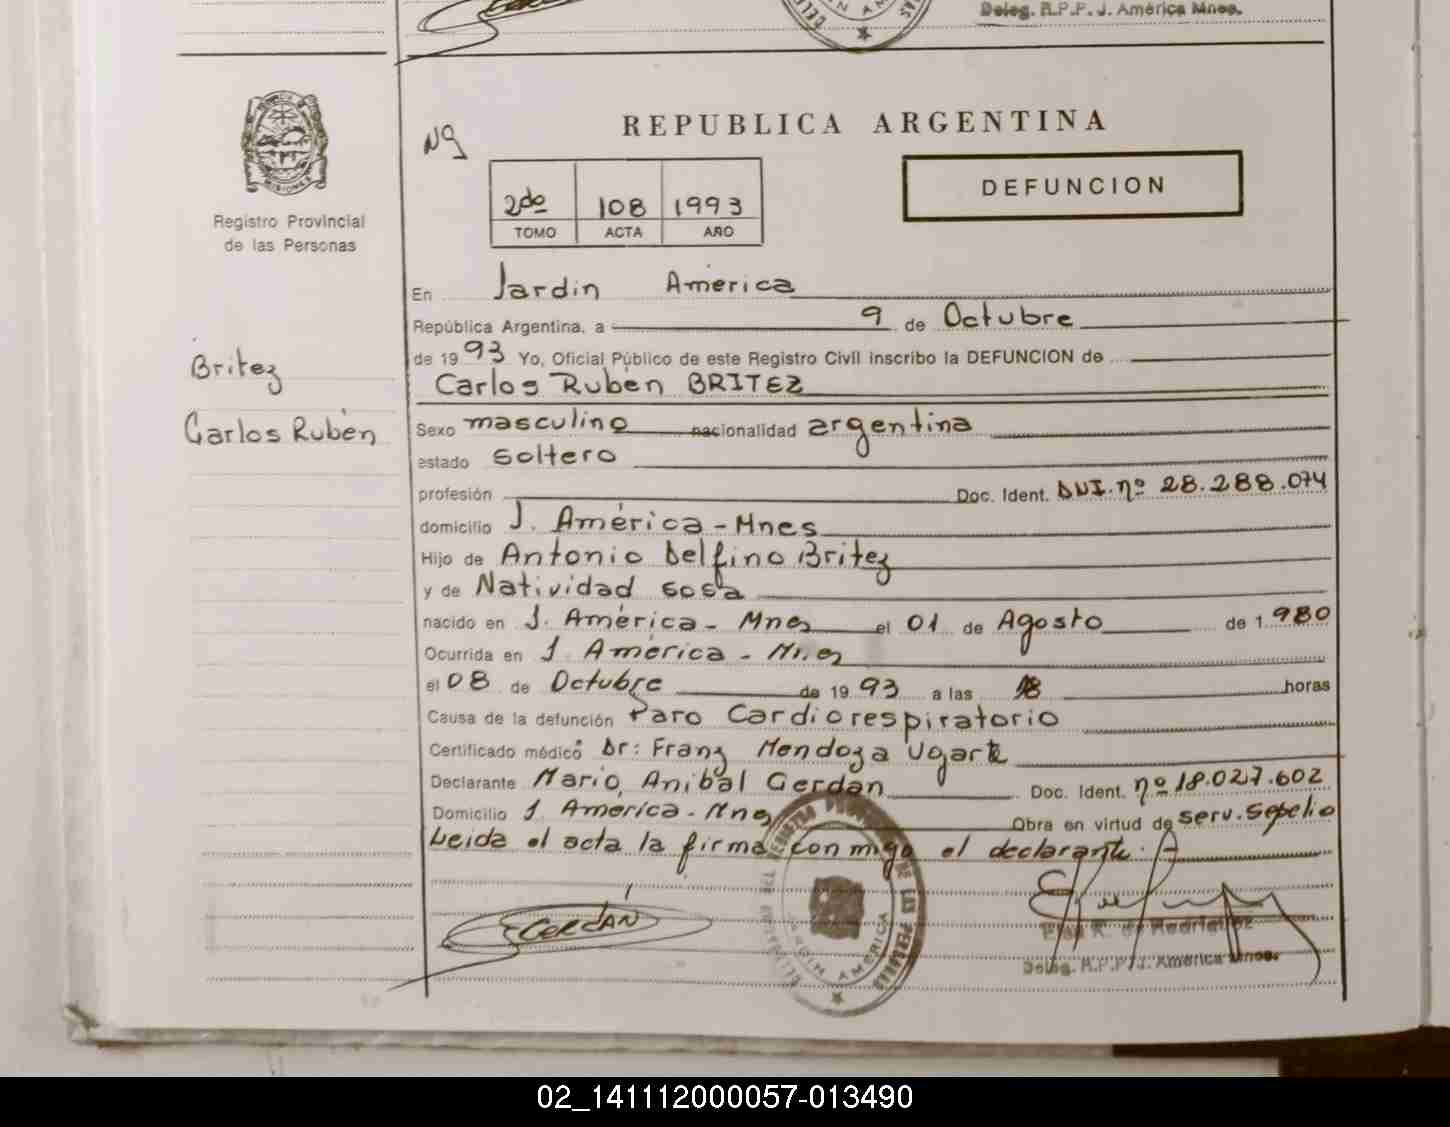 Deleg. R.P.P. J. América Mnes.
REPUBLICA ARGENTINA
DEFUNCION
2do 108 1993
TOMO ACTA AÑO
MISIONES
Registro Provincial
de las Personas
Britez
Carlos Rubén
En Jardin America
República Argentina, a 9 de Octubre
de 1993 Yo, Oficial Público de este Registro Civil inscribo la DEFUNCION de
Carlos Rubén BRITEZ
Sexo masculino nacionalidad argentina
estado soltero
profesión Doc. Ident. DNI. nº 28.288.074
domicilio J. América - Mnes
Hijo de Antonio Delfino Britez
y de Natividad Sosa
nacido en J. América - Mnes el 01 de Agosto de 1.980
Ocurrida en J. América - Mnes
el 08 de Octubre de 1993 a las 18 horas
Causa de la defunción Paro Cardiorespiratorio
Certificado médico Dr: Franz Mendoza Ugarte
Declarante Mario, Anibal Gerdan Doc. Ident. nº 18.027.602
Domicilio J. America - Mnes Obra en virtud de serv. Sepelio
Leida el acta la firma conmigo el declarante.
GERDÁN
JARDIN AMERICA
Elsa R. de Rodriguez
Deleg. R.P.P. J. América Mnes.
02_141112000057-013490